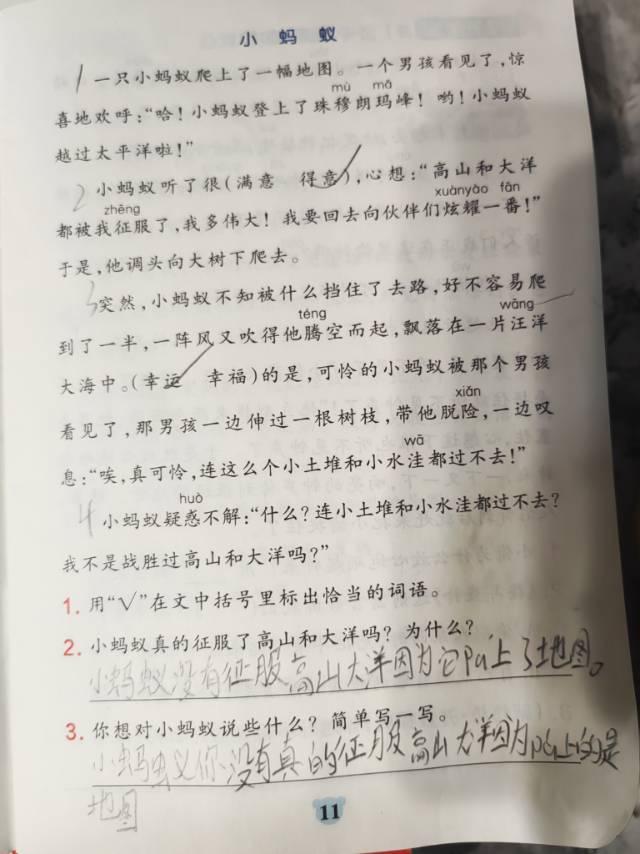 小 蚂 蚁
1 一只小蚂蚁爬上了一幅地图。一个男孩看见了,惊
mù mǎ
喜地欢呼:“哈!小蚂蚁登上了珠穆朗玛峰!哟!小蚂蚁
越过太平洋啦!”
2 小蚂蚁听了很(满意 得意✓),心想:“高山和大洋
zhēng xuànyào fān
都被我征服了,我多伟大!我要回去向伙伴们炫耀一番!”
于是,他调头向大树下爬去。
3 突然,小蚂蚁不知被什么挡住了去路,好不容易爬
téng wāng
到了一半,一阵风又吹得他腾空而起,飘落在一片汪洋
大海中。(幸运✓ 幸福)的是,可怜的小蚂蚁被那个男孩
xiǎn
看见了,那男孩一边伸过一根树枝,带他脱险,一边叹
wā
息:“唉,真可怜,连这么个小土堆和小水洼都过不去!”
huò
4 小蚂蚁疑惑不解:“什么?连小土堆和小水洼都过不去?
我不是战胜过高山和大洋吗?”
1. 用“√”在文中括号里标出恰当的词语。
2. 小蚂蚁真的征服了高山和大洋吗?为什么?
小蚂蚁没有征服高山大洋因为它pá上了地图。
3. 你想对小蚂蚁说些什么?简单写一写。
小蚂蚁你没有真的征服高山大洋因为pá上的是
地图
11